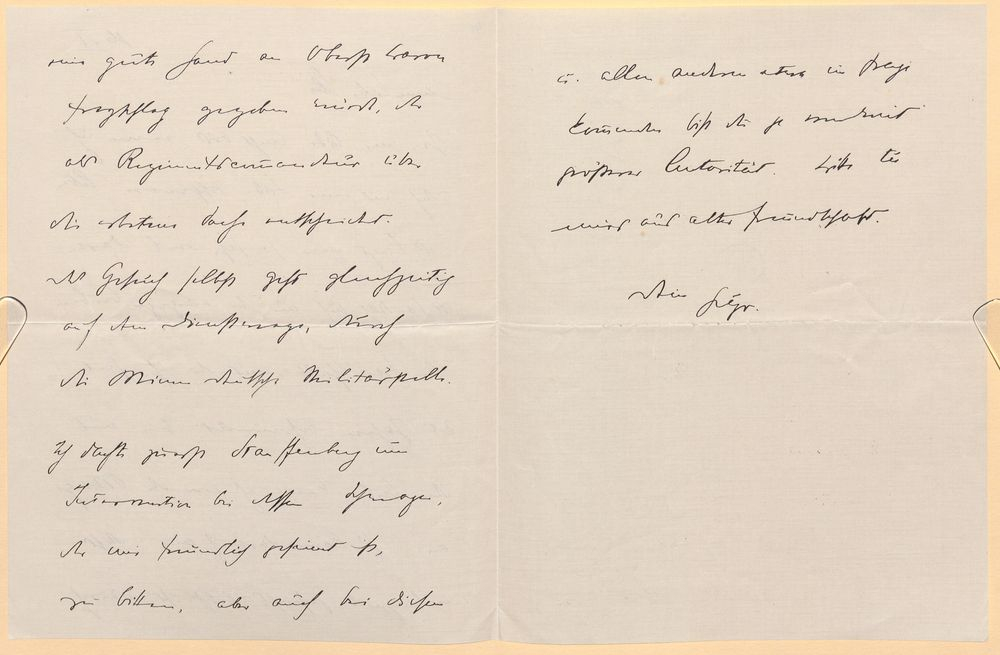 mir gute Hand an Oberst Baron
gegeben würde, der
als Regimentscommandeur über
die erbetene Sache entscheidet.
Das Gesuch selbst geht gleichzeitig
auf dem Dienstwege, durch
die Wiener deutsche Militärstelle.
Ich dachte zuerst Stauffenberg um
Intervention bei dessen Schwager,
der mir freundlich gesinnt ist,
zu bitten, aber auch bei diesem
u. allen anderen etwa in Frage
kommenden bist du ja von
grösserer Autorität. Bitte tu
mirs aus alter Freundschaft.
Dein Hugo.